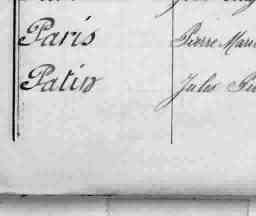 Paris Pierre Marie
Patin Jules